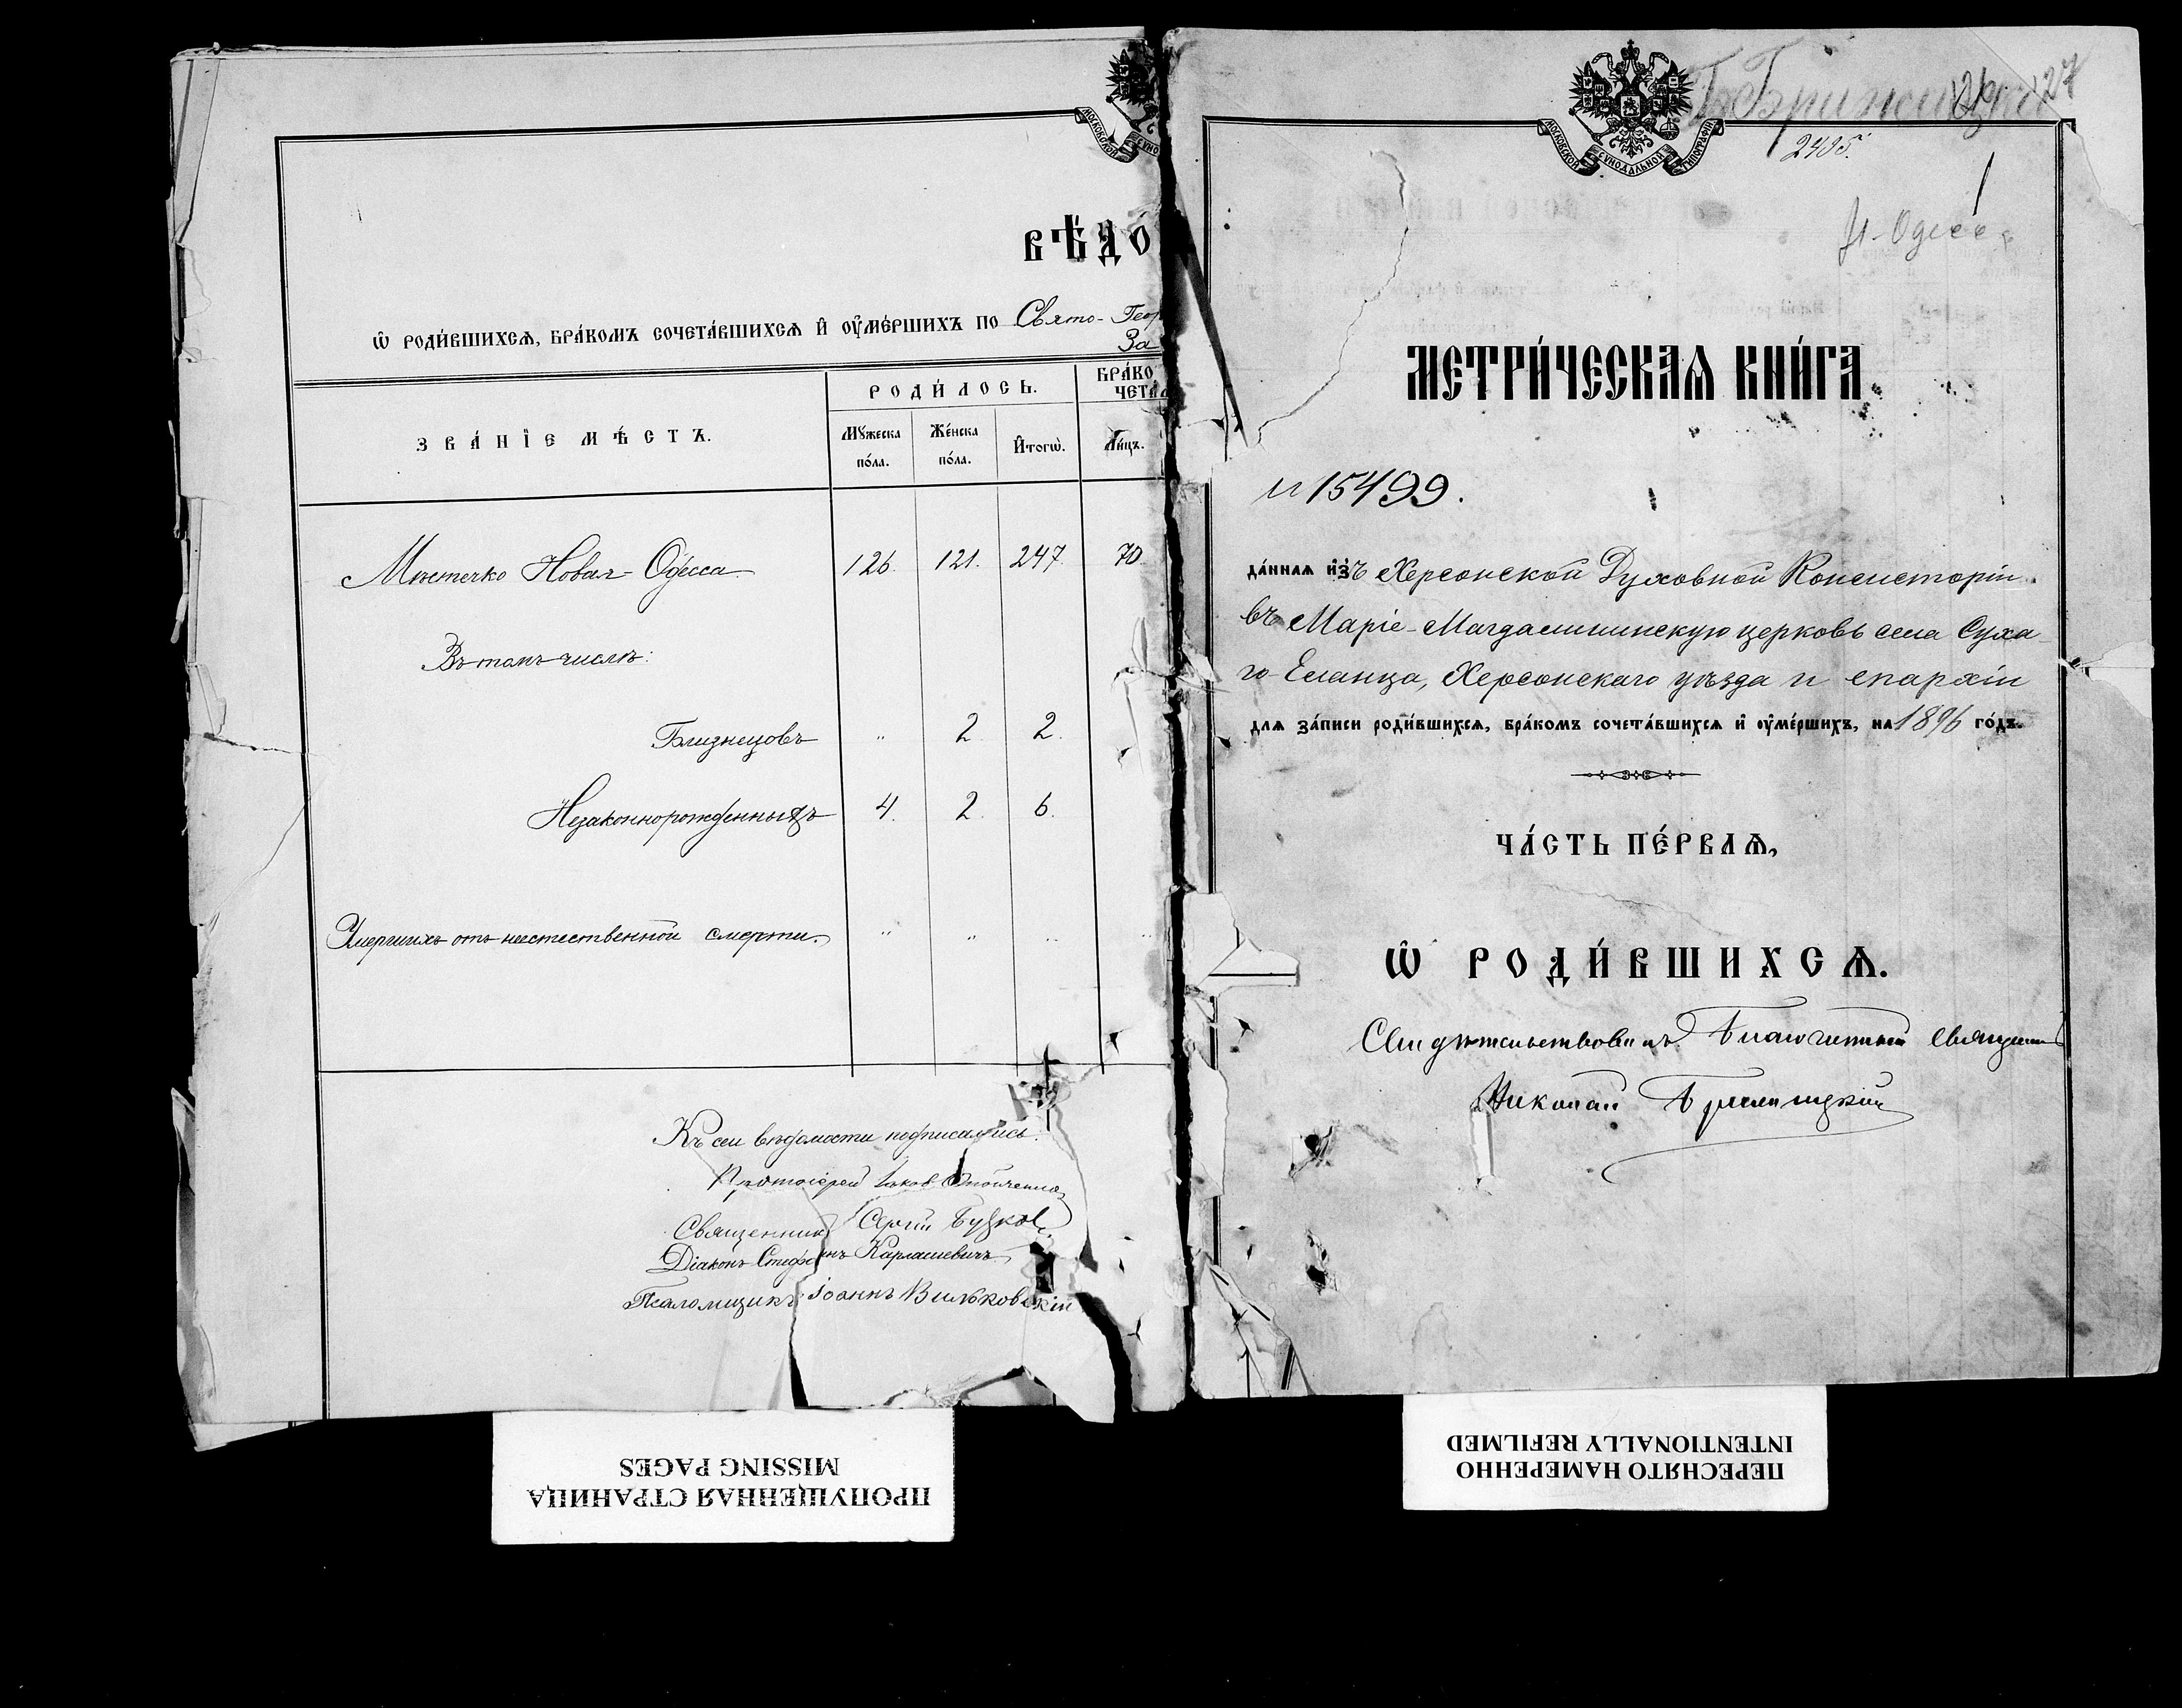 МОСКОВСКОЙ СѴНО
ВѢДО
Ѡ РОДИ́ВШИХСѦ, БРА́КОМЪ СОЧЕТА́ВШИХСѦ И҆ ОУ҆МЕ́РШИХЪ ПО Свято-Геор
За
ЗВА́НІЕ МѢ́СТЪ.
РОДИ́ЛОСЬ.
БРА́КО
ЧЕТА́Л
Мꙋжеска по́ла.
Же́нска по́ла.
И҆тогѡ̀.
Ли́цъ.
Мѣстечко Новая-Одесса 126. 121. 247. 70
Въ томъ числѣ:
Близнецовъ " 2. 2.
Незаконнорожденныхъ 4. 2. 6.
Умершихъ отъ неестественной смерти. " " " "
Къ сей вѣдомости подписались:
Протоіерей Іаков
Священник Сергій Бузков
Діаконъ Стефанъ Карашевичъ
Псаломщикъ Іоаннъ Вильковскій
ПРОПУЩЕННАЯ СТРАНИЦА
MISSING PAGES
127
МОСКОВСКОЙ СѴНОДАЛЬНОЙ ТИПОГРАФІИ
2495.
Н-Одесса
МЕТРИ́ЧЕСКАѦ КНИ́ГА
№ 15499.
да́нная и҆зъ Херсонской Духовной Консисторіи
въ Маріе-Магдалининскую церковь села Суха-
го-Еланца, Херсонскаго уѣзда и епархіи
для за́писи роди́вшихся, бра́комъ сочета́вшихся и҆ оу҆ме́ршихъ, на 1896 го́дъ.
ЧА́СТЬ ПЕ́РВАѦ,
Ѡ РОДИ́ВШИХСѦ.
Свидѣтельствовалъ Благочинный Священник
Николай Бриницкій
ПЕРЕСНЯТО НАМЕРЕННО
INTENTIONALLY REFILMED